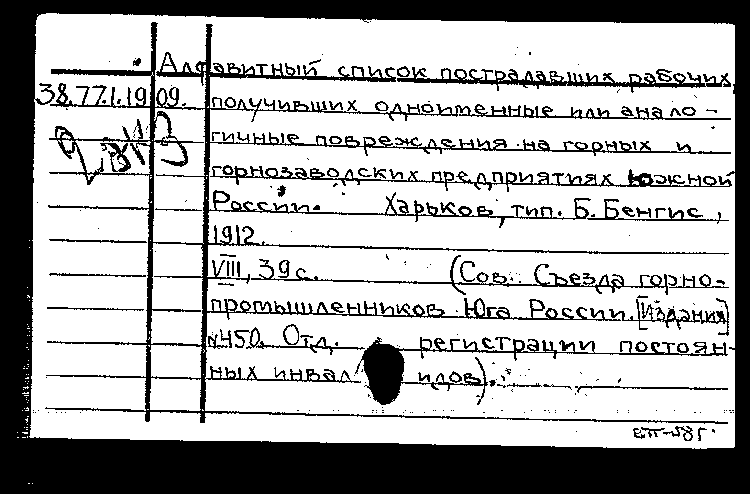 Алфавитный список пострадавших рабочих,
38.77.1.1909. получивших одноименные или анало-
гичные повреждения на горных и
горнозаводских предприятиях Южной
России. Харьков, тип. Б. Бенгис,
1912.
VIII, 39 с. (Сов. Съезда горно-
промышленников Юга России. [Издания]
№450. Отд. регистрации постоян-
ных инвалидов).